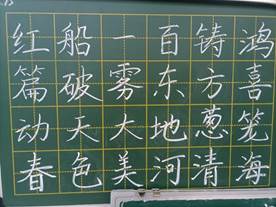 红船一百铸鸿
篇破雾东方喜
动天大地葱笼
春色美河清海